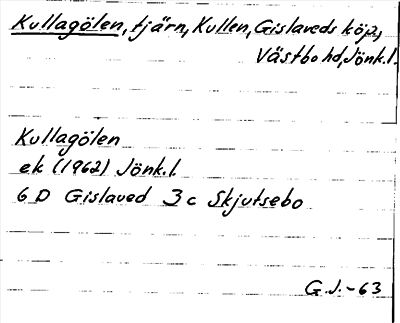 Kullagölen, tjärn, Kullen, Gislaveds köp.,
Västbo hd, Jönk.l.
Kullagölen
ek (1962) Jönk.l.
6 D Gislaved 3 c Skjutsebo
G.J.-63